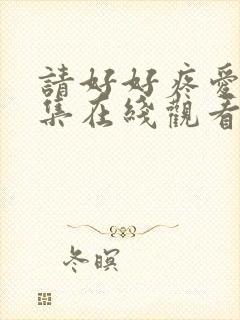 請好好疼愛
集在綫觀看
冬暝